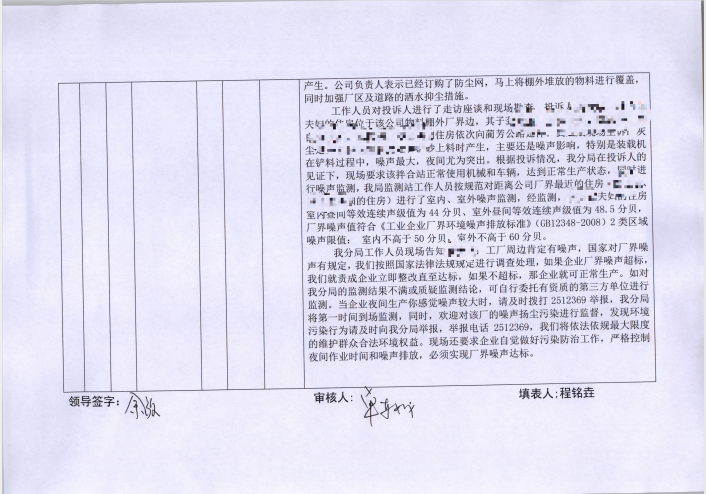 产生。公司负责人表示已经订购了防尘网，马上将棚外堆放的物料进行覆盖，
同时加强厂区及道路的洒水抑尘措施。
工作人员对投诉人进行了走访座谈和现场勘查，投诉人
夫妇的住房位于该公司物料棚外厂界边，其子
住房依次向蔺芳公路
尘 砂上料时产生，主要还是噪声影响，特别是装载机
在铲料过程中，噪声最大，夜间尤为突出。根据投诉情况，我分局在投诉人的
见证下，现场要求该拌合站正常使用机械和车辆，达到正常生产状态，同时进
行噪声监测，我局监测站工作人员按规范对距离公司厂界最近的住房
的住房）进行了室内、室外噪声监测，经监测， 夫妇的住房
室内昼间等效连续声级值为 44 分贝、室外昼间等效连续声级值为 48.5 分贝，
厂界噪声值符合《工业企业厂界环境噪声排放标准》（GB12348-2008）2 类区域
噪声限值： 室内不高于 50 分贝、室外不高于 60 分贝。
我分局工作人员现场告知 ：工厂周边肯定有噪声，国家对厂界噪
声有规定，我们按照国家法律法规规定进行调查处理，如果企业厂界噪声超标，
我们就责成企业立即整改直至达标，如果不超标，那企业就可正常生产。如对
我分局的监测结果不满或质疑监测结论，可自行委托有资质的第三方单位进行
监测。当企业夜间生产你感觉噪声较大时，请及时拨打 2512369 举报，我分局
将第一时间到场监测，同时，欢迎对该厂的噪声扬尘污染进行监督，发现环境
污染行为请及时向我分局举报，举报电话 2512369，我们将依法依规最大限度
的维护群众合法环境权益。现场还要求企业自觉做好污染防治工作，严格控制
夜间作业时间和噪声排放，必须实现厂界噪声达标。
领导签字： 审核人： 填表人；程铭垚